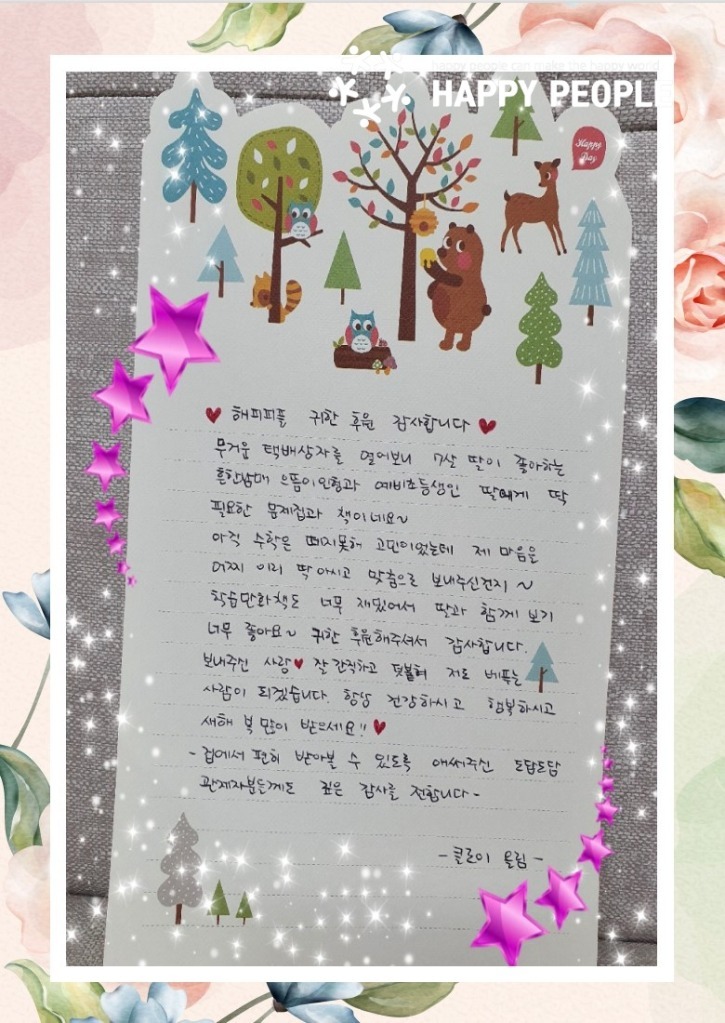 happy people can make the happy world
HAPPY PEOPLE
Happy
Day
해피피플 귀한 후원 감사합니다
무거운 택배상자를 열어보니 7살 딸이 좋아하는
흔한남매 으뜸이인형과 예비초등생인 딸에게 딱
필요한 문제집과 책이네요~
아직 수학은 떼지못해 고민이었는데 제 마음을
어찌 이리 딱 아시고 맞춤으로 보내주신건지 ~
학습만화책도 너무 재밌어서 딸과 함께 보기
너무 좋아요~ 귀한 후원해주셔서 감사합니다.
보내주신 사랑♥ 잘 간직하고 덧붙혀 저도 베푸는
사람이 되겠습니다. 항상 건강하시고 행복하시고
새해 복 많이 받으세요!!
- 집에서 편히 받아볼 수 있도록 애써주신 도담도담
관계자분들께도 깊은 감사를 전합니다-
- 클로이 올림 -